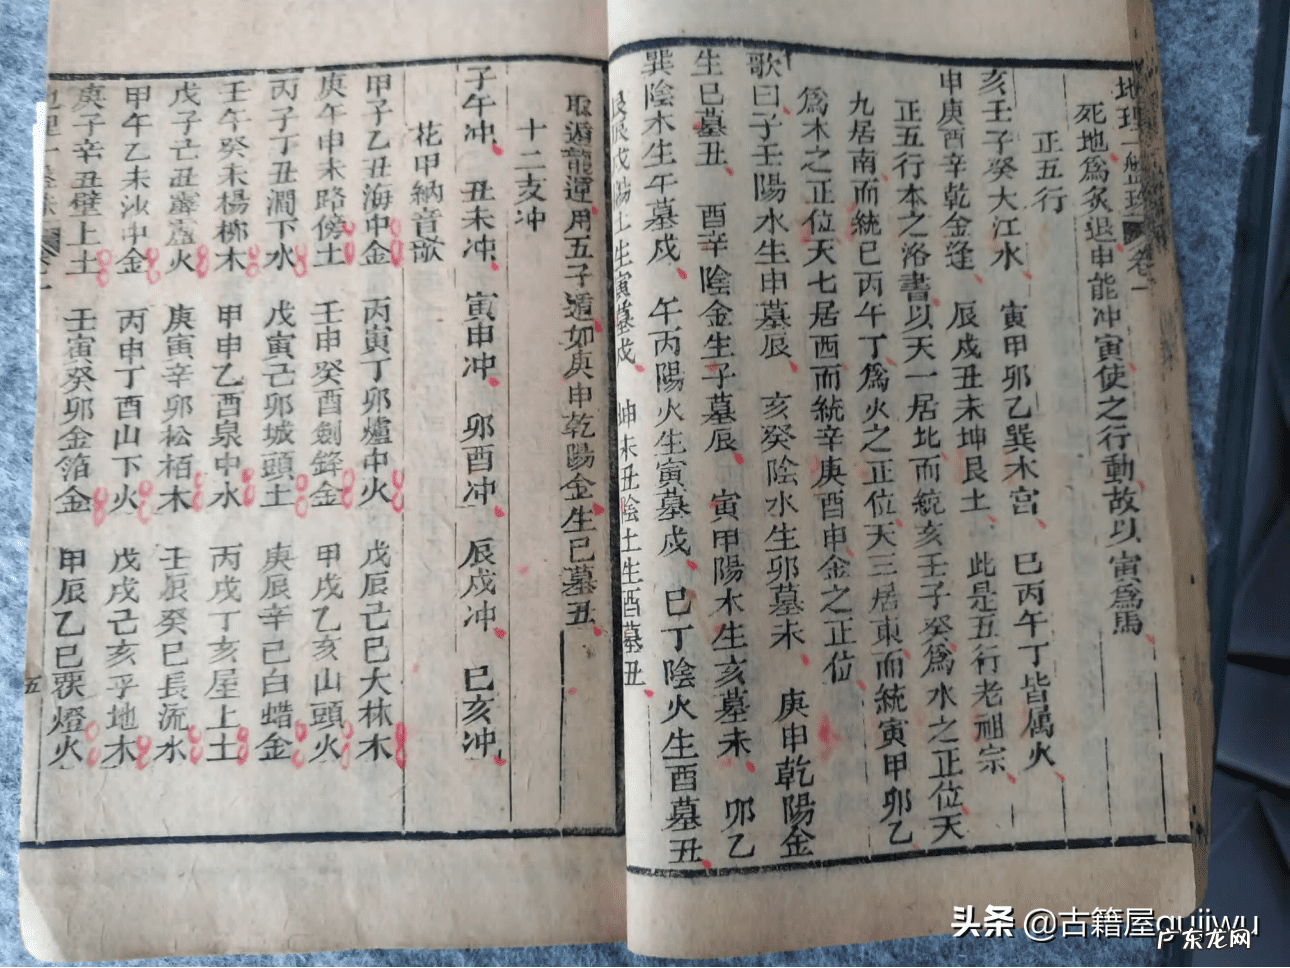 地理
卷一
死地為炙退申能冲寅使之行動故以寅為馬
正五行
亥壬子癸大江水 寅甲卯乙巽木宮 巳丙午丁皆属火
申庚酉辛乾金逢 辰戌丑未坤艮土 此是五行老祖宗
正五行本之洛書以天一居北而統亥壬子癸為水之正位天
九居南而統巳丙午丁為火之正位天三居東而統寅甲卯乙
為木之正位天七居西而統辛庚酉申金之正位
歌曰子壬陽水生申墓辰 亥癸陰水生卯墓未 庚申乾陽金
生巳墓丑 酉辛陰金生子墓辰 寅甲陽木生亥墓未 卯乙
巽陰木生午墓戌 午丙陽火生寅墓戌 巳丁陰火生酉墓丑
艮辰戌陽土生寅墓戌 坤未丑陰土生酉墓丑
取遁龍運用五子遁如庚申乾陽金生巳墓丑
十二支冲
子午冲 丑未冲 寅申冲 卯酉冲 辰戌冲 巳亥冲
花甲納音歌
甲子乙丑海中金 丙寅丁卯爐中火 戊辰己巳大林木
庚午申未路傍土 壬申癸酉劍鋒金 甲戌乙亥山頭火
丙子丁丑澗下水 戊寅己卯城頭土 庚辰辛巳白蜡金
壬午癸未楊柳木 甲申乙酉泉中水 丙戌丁亥屋上土
戊子己丑霹靂火 庚寅辛卯松栢木 壬辰癸巳長流水
甲午乙未沙中金 丙申丁酉山下火 戊戌己亥平地木
庚子辛丑壁上土 壬寅癸卯金箔金 甲辰乙巳覆燈火
五
头条 @古籍屋gujiwu
广东龙网